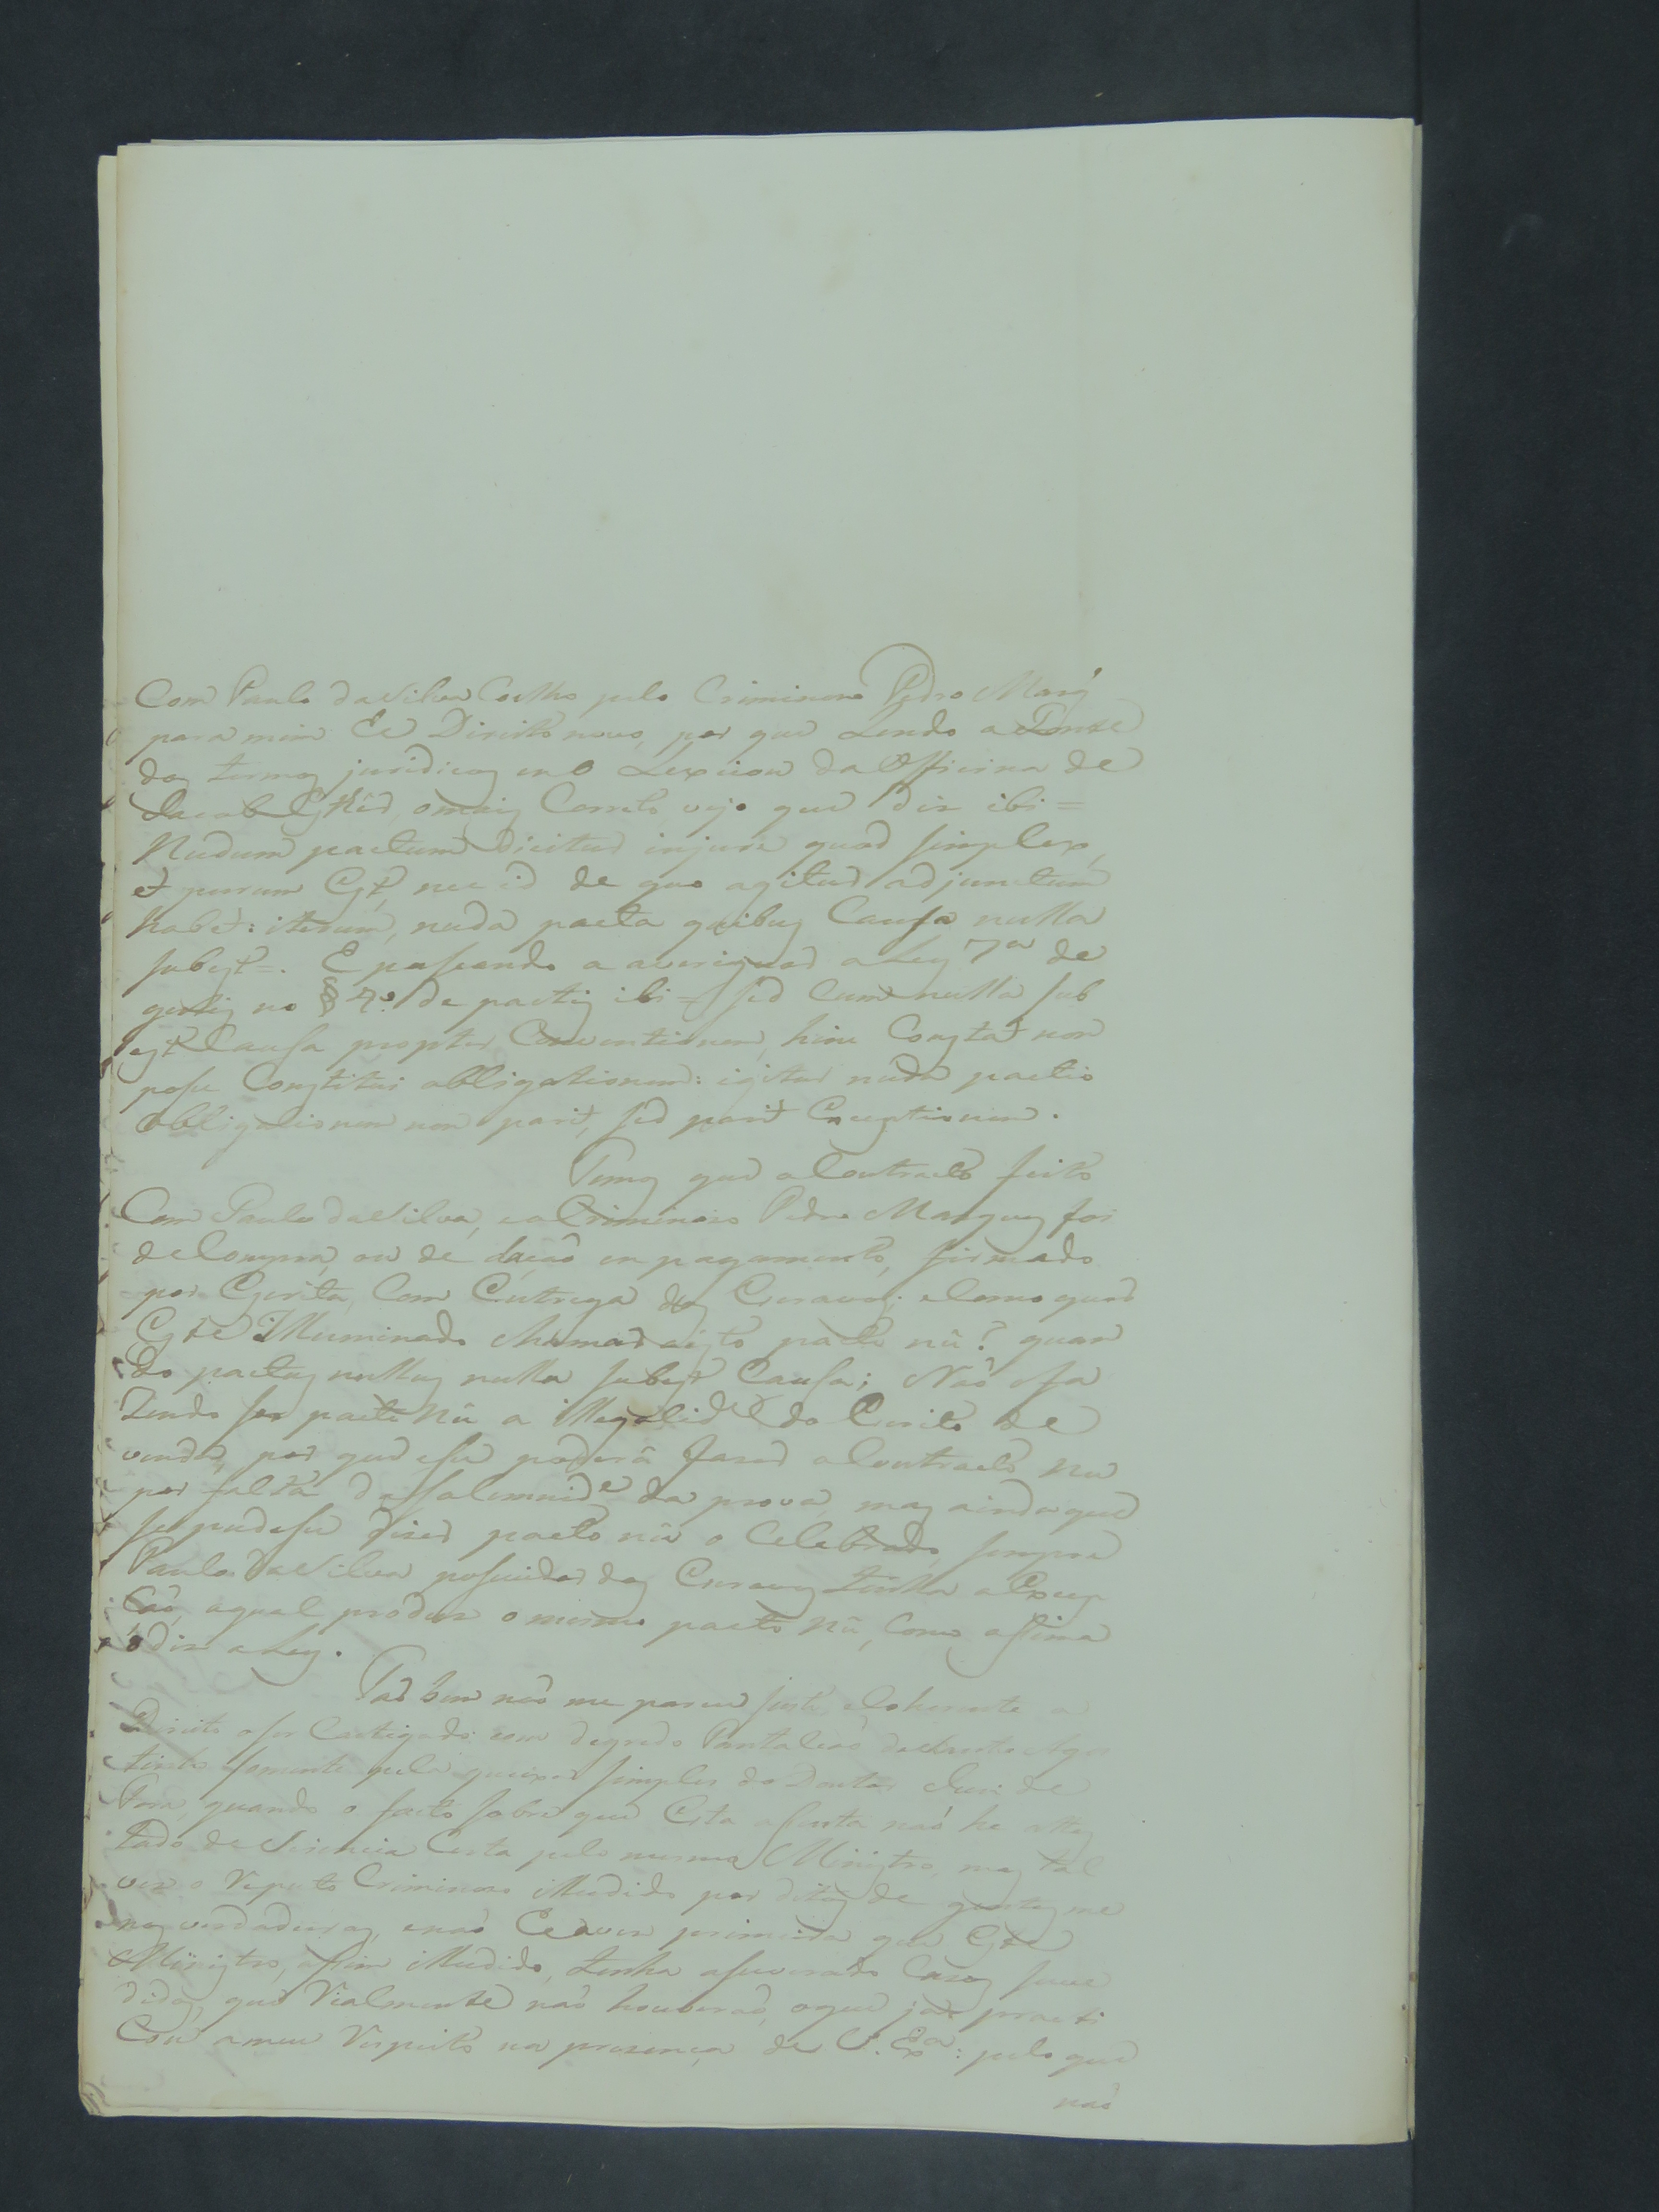 Com Paulo da Silva Coelho pelo Criminoso Pedro Marq̃
para mim he Direito novo, por que Lendo a Fonte
dos termos juridicos em o Lexicon da Officina de
Jacob, o mais Correcto vejo que diz ibi =
Nudum pactum dicitur injure quod simplex,
et purum Est, nec id de quo agitur adjunctum
habet: iterum, nuda pacta quibus Causa nulla
subest =. E passando a averiguar a Ley 7ª de
no § 4º de pactis ibi = sed Cum nulla sub
est Causa propter Conventionem, hinc Constat non
posse Constitui obligationem: igitur nuda pactio
obligationem non parit, sed parit Exceptionem.
Temos que o Contracto feito
Com Paulo da Silva, e o Criminoso Pedro Marques foi
de Compra, ou de dação em pagamento, firmado
por Escrito, Com Entrega dos Escravos; e Como quer
Este Illuminado chamar a isto pacto nú? quan
do pactus nullus nulla subest Causa; Não fa
zendo ser pacto Nú a illegalidᵉ do Escrito de
venda, por que essa poderá fazer o Contracto nu
por falta da solemnidᵉ da prova, mas ainda que
se pudesse dizer pacto nú o Celebrado, sempre
Paulo da Silva possuidor dos Escravos tinha a Excep
ção, a qual produz o mesmo pacto Nú, Como assima
o diz a Ley.
Tão bem não me parece justo, e Coherente a
Direito o ser Castigado com degredo Pantaleão dos Santos Agos
tinho somente pela queixa simples do Doutor Juiz de
Fora, quando o facto sobre que Esta assenta não he attes
tado de Siencia Certa pelo mesmo Ministro, mas tal
vez o Reputo Criminoso illudido por ditos de gentes me
nos verdadeiras, e não he a vez primeira que Este
Ministro, assim illudido, tenha asseverado Casos suce
didos, que Realmente não houverão, o que já practi
Cou a meu Respeito na presença de V. Exª: pelo que
não